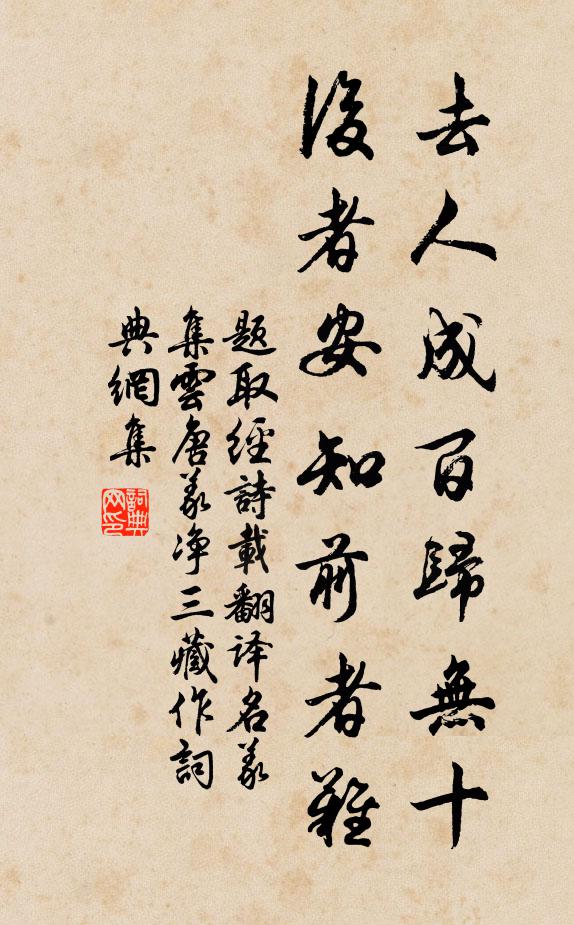 去人成百歸無十
後者安知前者難
題取經詩載翻译名義
集雲唐義净三藏作詞
典網集
詞典網印